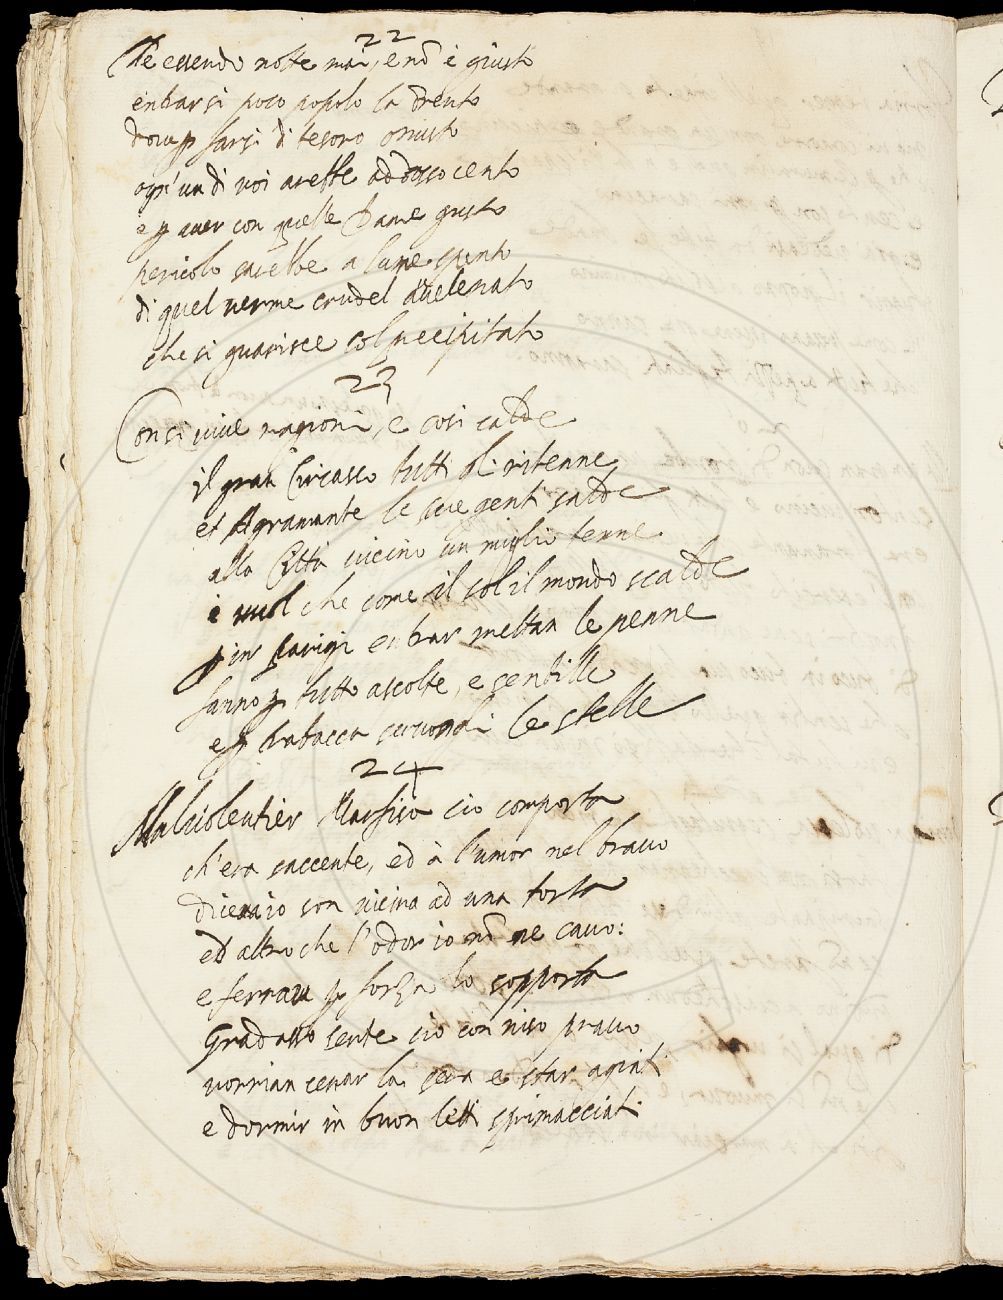 22
De essendo notte mai, e nō è giusto
enbarsi poco popolo la drento
doue p̱ farsi di tesoro onusto
ogn'un di noi auesse adosso cento
e p̱ auer con quelle Dame gusto
pericolo sarebbe a lume spento
di quel uerme crudel auelenato
che si guarisce col precipitato
23
Con si uiue ragioni, e cosi calde
il gran Circasso tutti li ritenne
et Agramante le sue genti salde
alla Città uicino un miglio tenne
e uuol che come il sol il mondo scalde
p̱ in Parigi enbar mettan le penne
fanno p̱ tutto ascolte, e sentille
e p̱ trabacca le stelle
24
Maluolentier Marfisa cio comporta
ch'era saccente, ed à l'umor nel brauo
diceua io son uicina ad una torta
ed altro che l'odor io nō ne cauo:
e ferrau p̱ forza lo sopporta
Gradasso sente cio con uiso prauo
uorrian cenar la sera e star agiati
e dormir in buon letti sprimacciati